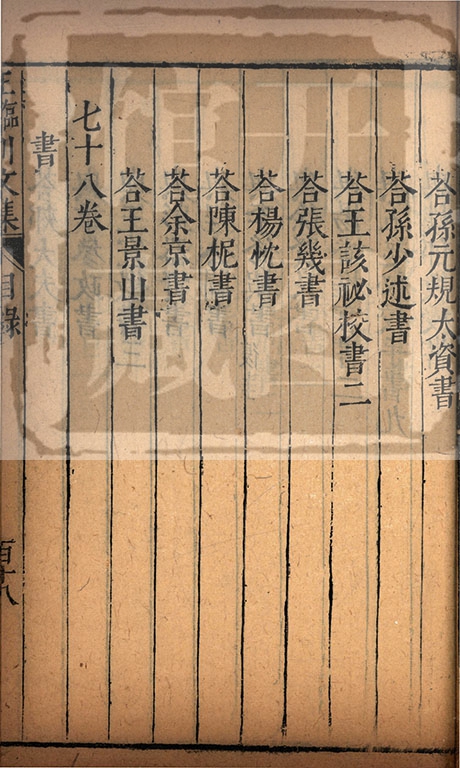 荅孫元規大資書
荅孫少述書
荅王該祕校書二
荅張幾書
荅楊忱書
荅陳柅書
荅余京書
荅王景山書
七十八卷
書
王臨川文集
目錄
百十八